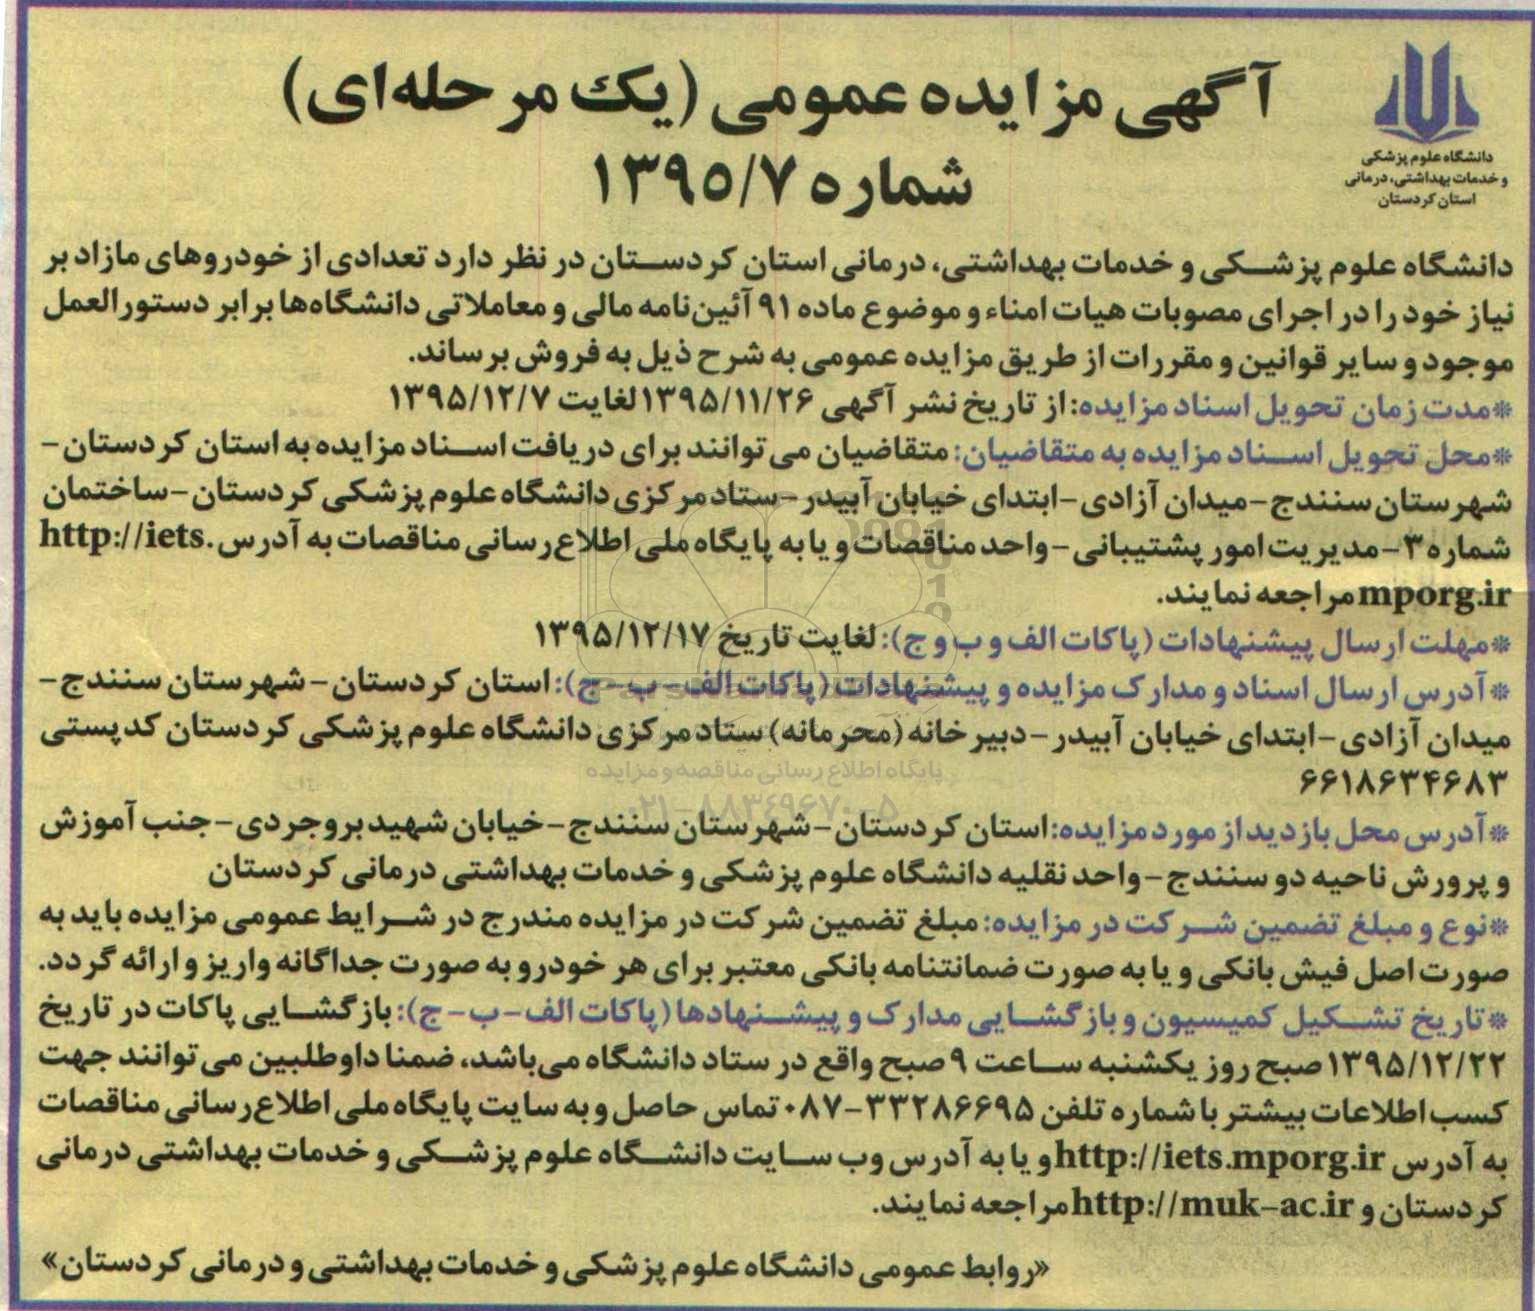 آگهی مزایده عمومی (یک مرحله‌ای)
شماره ۱۳۹۵/۷
دانشگاه علوم پزشکی
و خدمات بهداشتی، درمانی
استان کردستان
دانشگاه علوم پزشکی و خدمات بهداشتی، درمانی استان کردستان در نظر دارد تعدادی از خودروهای مازاد بر
نیاز خود را در اجرای مصوبات هیات امناء و موضوع ماده ۹۱ آئین‌نامه مالی و معاملاتی دانشگاه‌ها برابر دستورالعمل
موجود و سایر قوانین و مقررات از طریق مزایده عمومی به شرح ذیل به فروش برساند.
*مدت زمان تحویل اسناد مزایده: از تاریخ نشر آگهی ۱۳۹۵/۱۱/۲۶ لغایت ۱۳۹۵/۱۲/۷
*محل تحویل اسناد مزایده به متقاضیان: متقاضیان می توانند برای دریافت اسناد مزایده به استان کردستان-
شهرستان سنندج-میدان آزادی-ابتدای خیابان آبیدر-ستاد مرکزی دانشگاه علوم پزشکی کردستان-ساختمان
شماره ۳-مدیریت امور پشتیبانی-واحد مناقصات و یا به پایگاه ملی اطلاع‌رسانی مناقصات به آدرس http://iets.
mporg.ir مراجعه نمایند.
*مهلت ارسال پیشنهادات (پاکات الف و ب و ج): لغایت تاریخ ۱۳۹۵/۱۲/۱۷
*آدرس ارسال اسناد و مدارک مزایده و پیشنهادات (پاکات الف-ب-ج): استان کردستان-شهرستان سنندج-
میدان آزادی-ابتدای خیابان آبیدر-دبیرخانه (محرمانه) ستاد مرکزی دانشگاه علوم پزشکی کردستان کدپستی
پایگاه اطلاع رسانی مناقصه و مزایده
۶۶۱۸۶۳۴۶۸۳
۰۲۱-۸۸۳۴۹۶۷۰-۵
*آدرس محل بازدید از مورد مزایده: استان کردستان-شهرستان سنندج-خیابان شهید بروجردی-جنب آموزش
و پرورش ناحیه دو سنندج-واحد نقلیه دانشگاه علوم پزشکی و خدمات بهداشتی درمانی کردستان
*نوع و مبلغ تضمین شرکت در مزایده: مبلغ تضمین شرکت در مزایده مندرج در شرایط عمومی مزایده باید به
صورت اصل فیش بانکی و یا به صورت ضمانتنامه بانکی معتبر برای هر خودرو به صورت جداگانه واریز و ارائه گردد.
*تاریخ تشکیل کمیسیون و بازگشایی مدارک و پیشنهادها (پاکات الف-ب-ج): بازگشایی پاکات در تاریخ
۱۳۹۵/۱۲/۲۲ صبح روز یکشنبه ساعت ۹ صبح واقع در ستاد دانشگاه می‌باشد، ضمنا داوطلبین می توانند جهت
کسب اطلاعات بیشتر با شماره تلفن ۳۳۲۸۶۶۹۵-۰۸۷ تماس حاصل و به سایت پایگاه ملی اطلاع‌رسانی مناقصات
به آدرس http://iets.mporg.ir و یا به آدرس وب سایت دانشگاه علوم پزشکی و خدمات بهداشتی درمانی
کردستان و http://muk-ac.ir مراجعه نمایند.
«روابط عمومی دانشگاه علوم پزشکی و خدمات بهداشتی و درمانی کردستان»